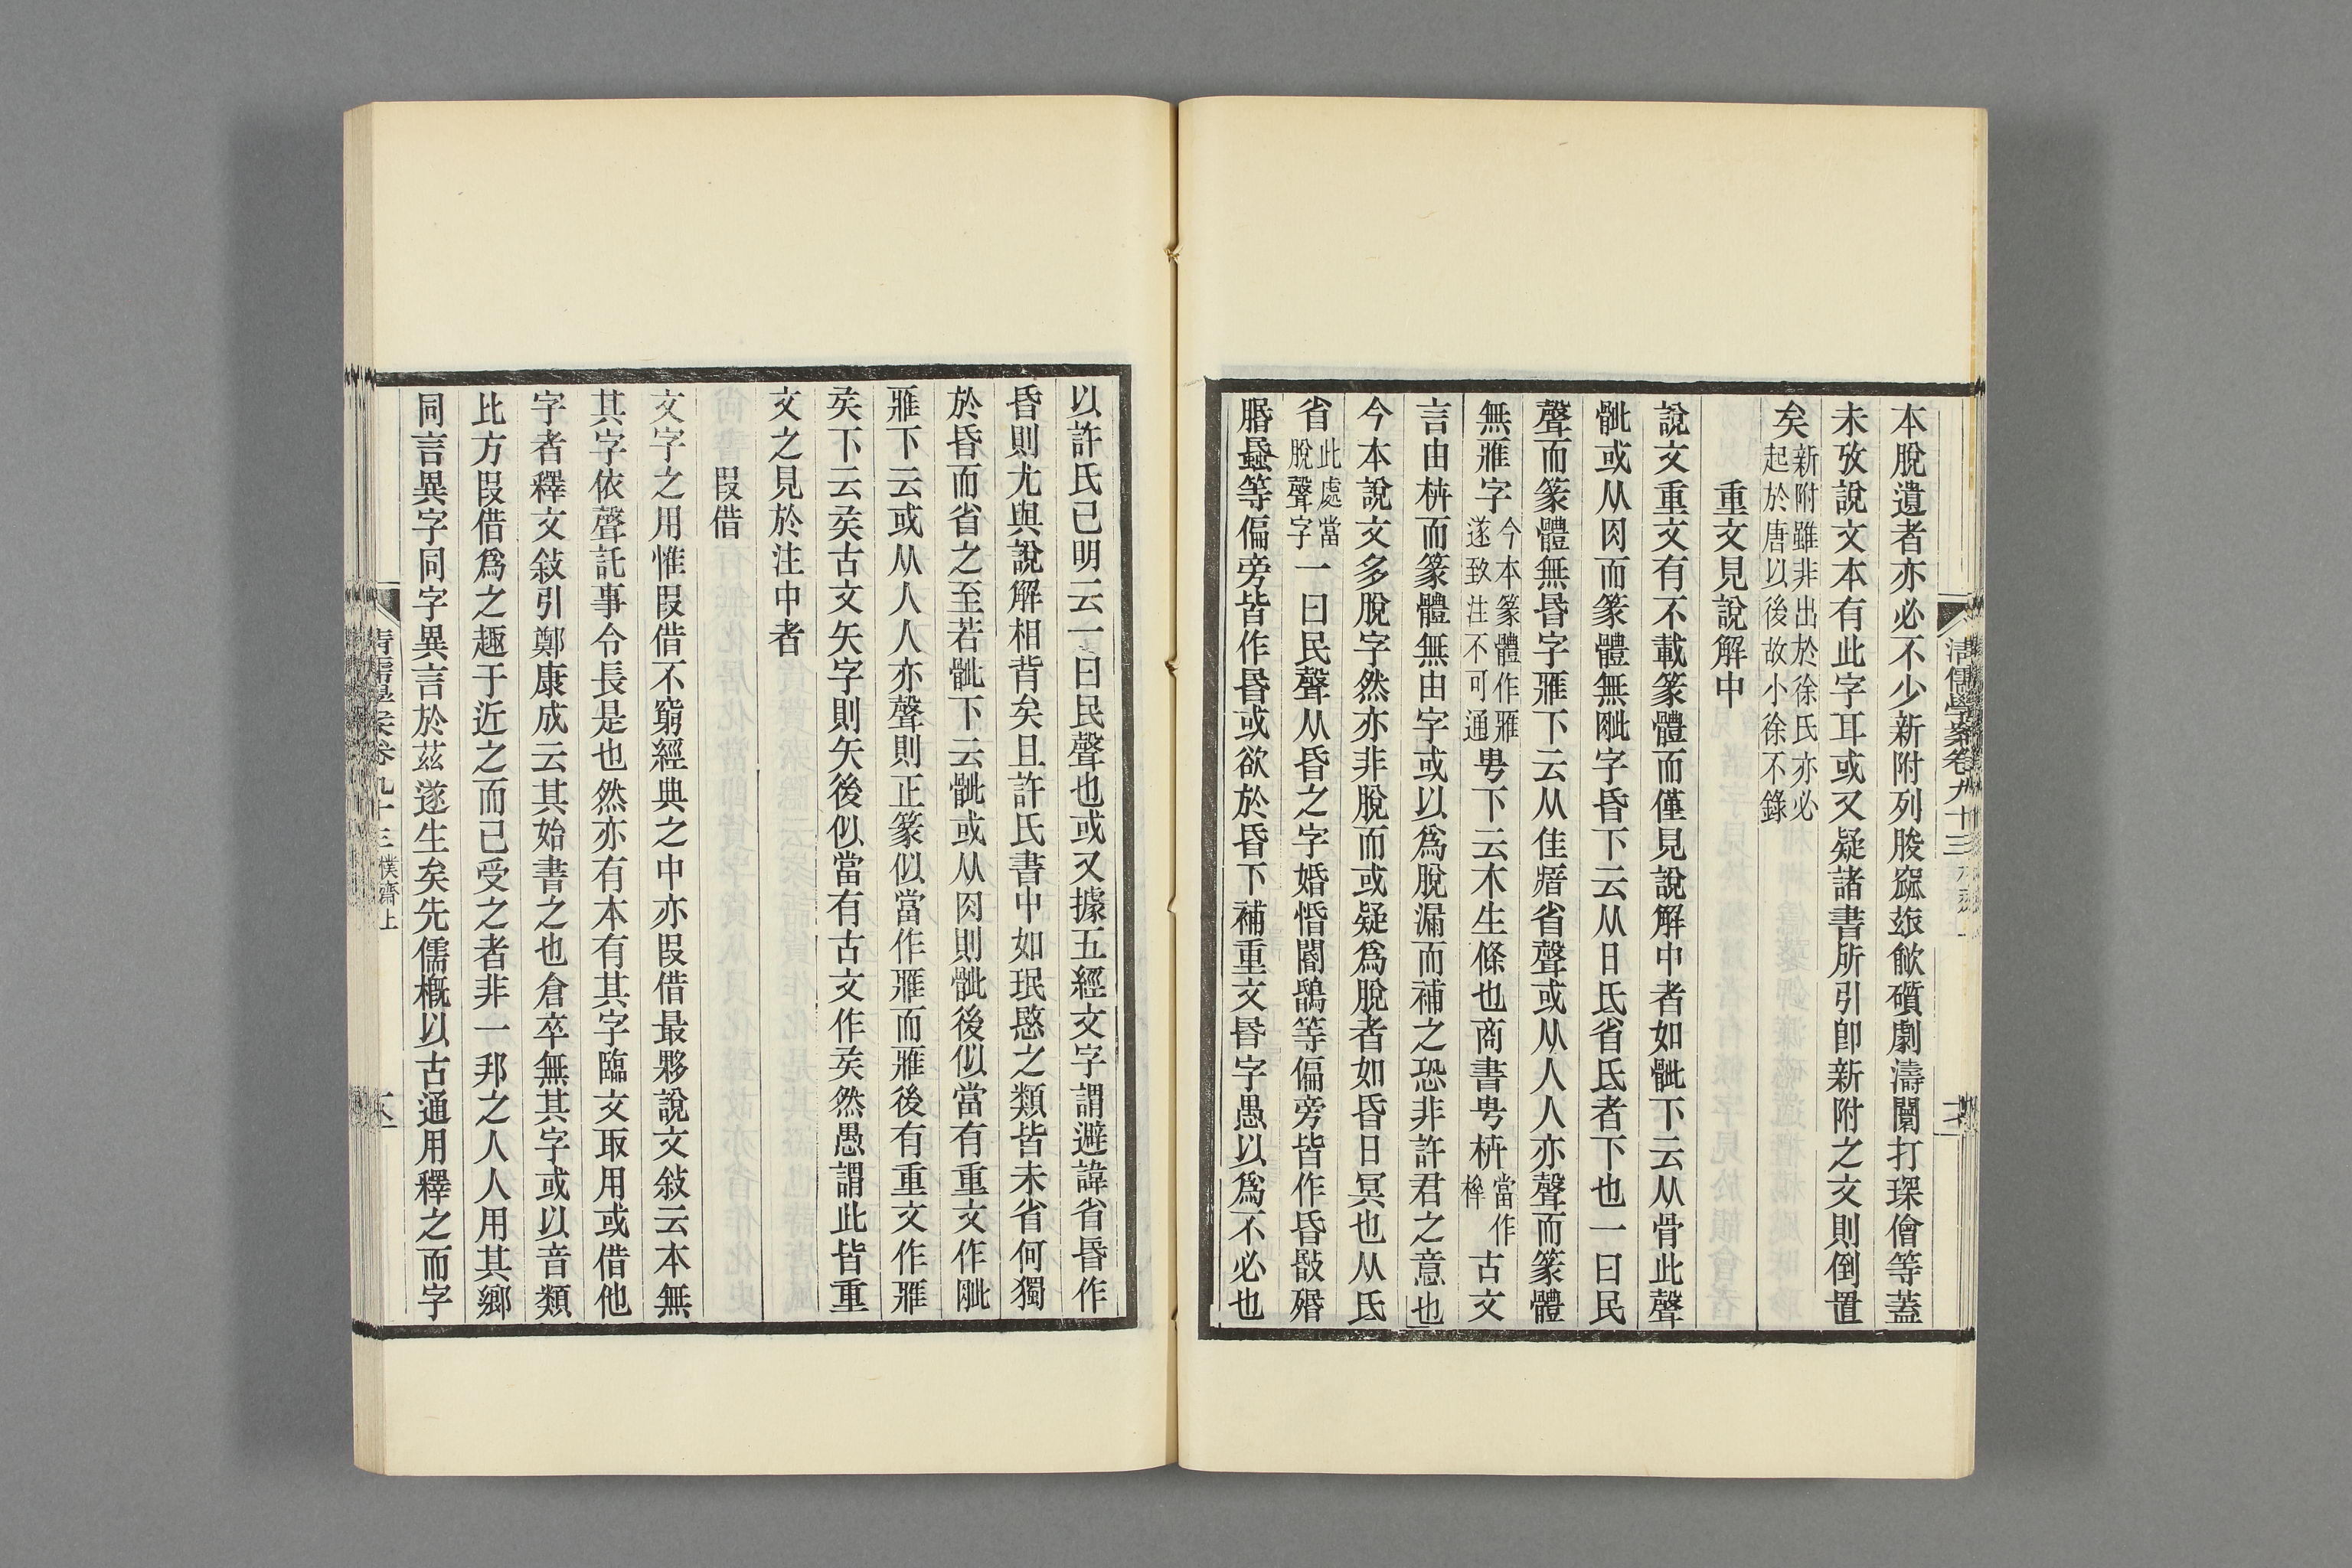 本脫遺者亦必不少新附列朘窾㫍歈礩劇濤闤打琛儈等蓋
未攷說文本有此字耳或又疑諸書所引卽新附之文則倒置
矣新附雖非出於徐氏亦必
起於唐以後故小徐不錄
重文見說解中
說文重文有不載篆體而僅見說解中者如骴下云从骨此聲
骴或从肉而篆體無𦙼字昏下云从日氐省氐者下也一曰民
聲而篆體無昬字䧹下云从隹瘖省聲或从人人亦聲而篆體
無雁字今本篆體作雁
遂致注不可通甹下云木生條也商書甹枿當作
㭮古文
言由枿而篆體無由字或以爲脫漏而補之恐非許君之意也
今本說文多脫字然亦非脫而或疑爲脫者如昏日冥也从氐
省此處當
脫聲字一曰民聲从昏之字婚惛閽鶛等偏旁皆作昏敯殙
䐇蟁等偏旁皆作昬或欲於昏下補重文昬字愚以爲不必也
以許氏已明云一曰民聲也或又據五經文字謂避諱省昬作
昏則尤與說解相背矣且許氏書中如珉愍之類皆未省何獨
於昏而省之至若骴下云骴或从肉則骴後似當有重文作𦙼
雁下云或从人人亦聲則正篆似當作䧹而䧹後有重文作雁
矦下云矦古文矢字則矢後似當有古文作矦然愚謂此皆重
文之見於注中者
叚借
文字之用惟叚借不窮經典之中亦叚借最夥說文敍云本無
其字依聲託事令長是也然亦有本有其字臨文取用或借他
字者釋文敍引鄭康成云其始書之也倉卒無其字或以音類
比方叚借爲之趣于近之而已受之者非一邦之人人用其鄉
同言異字同字異言於茲遂生矣先儒槪以古通用釋之而字
清儒學案卷九十三 樸齋上